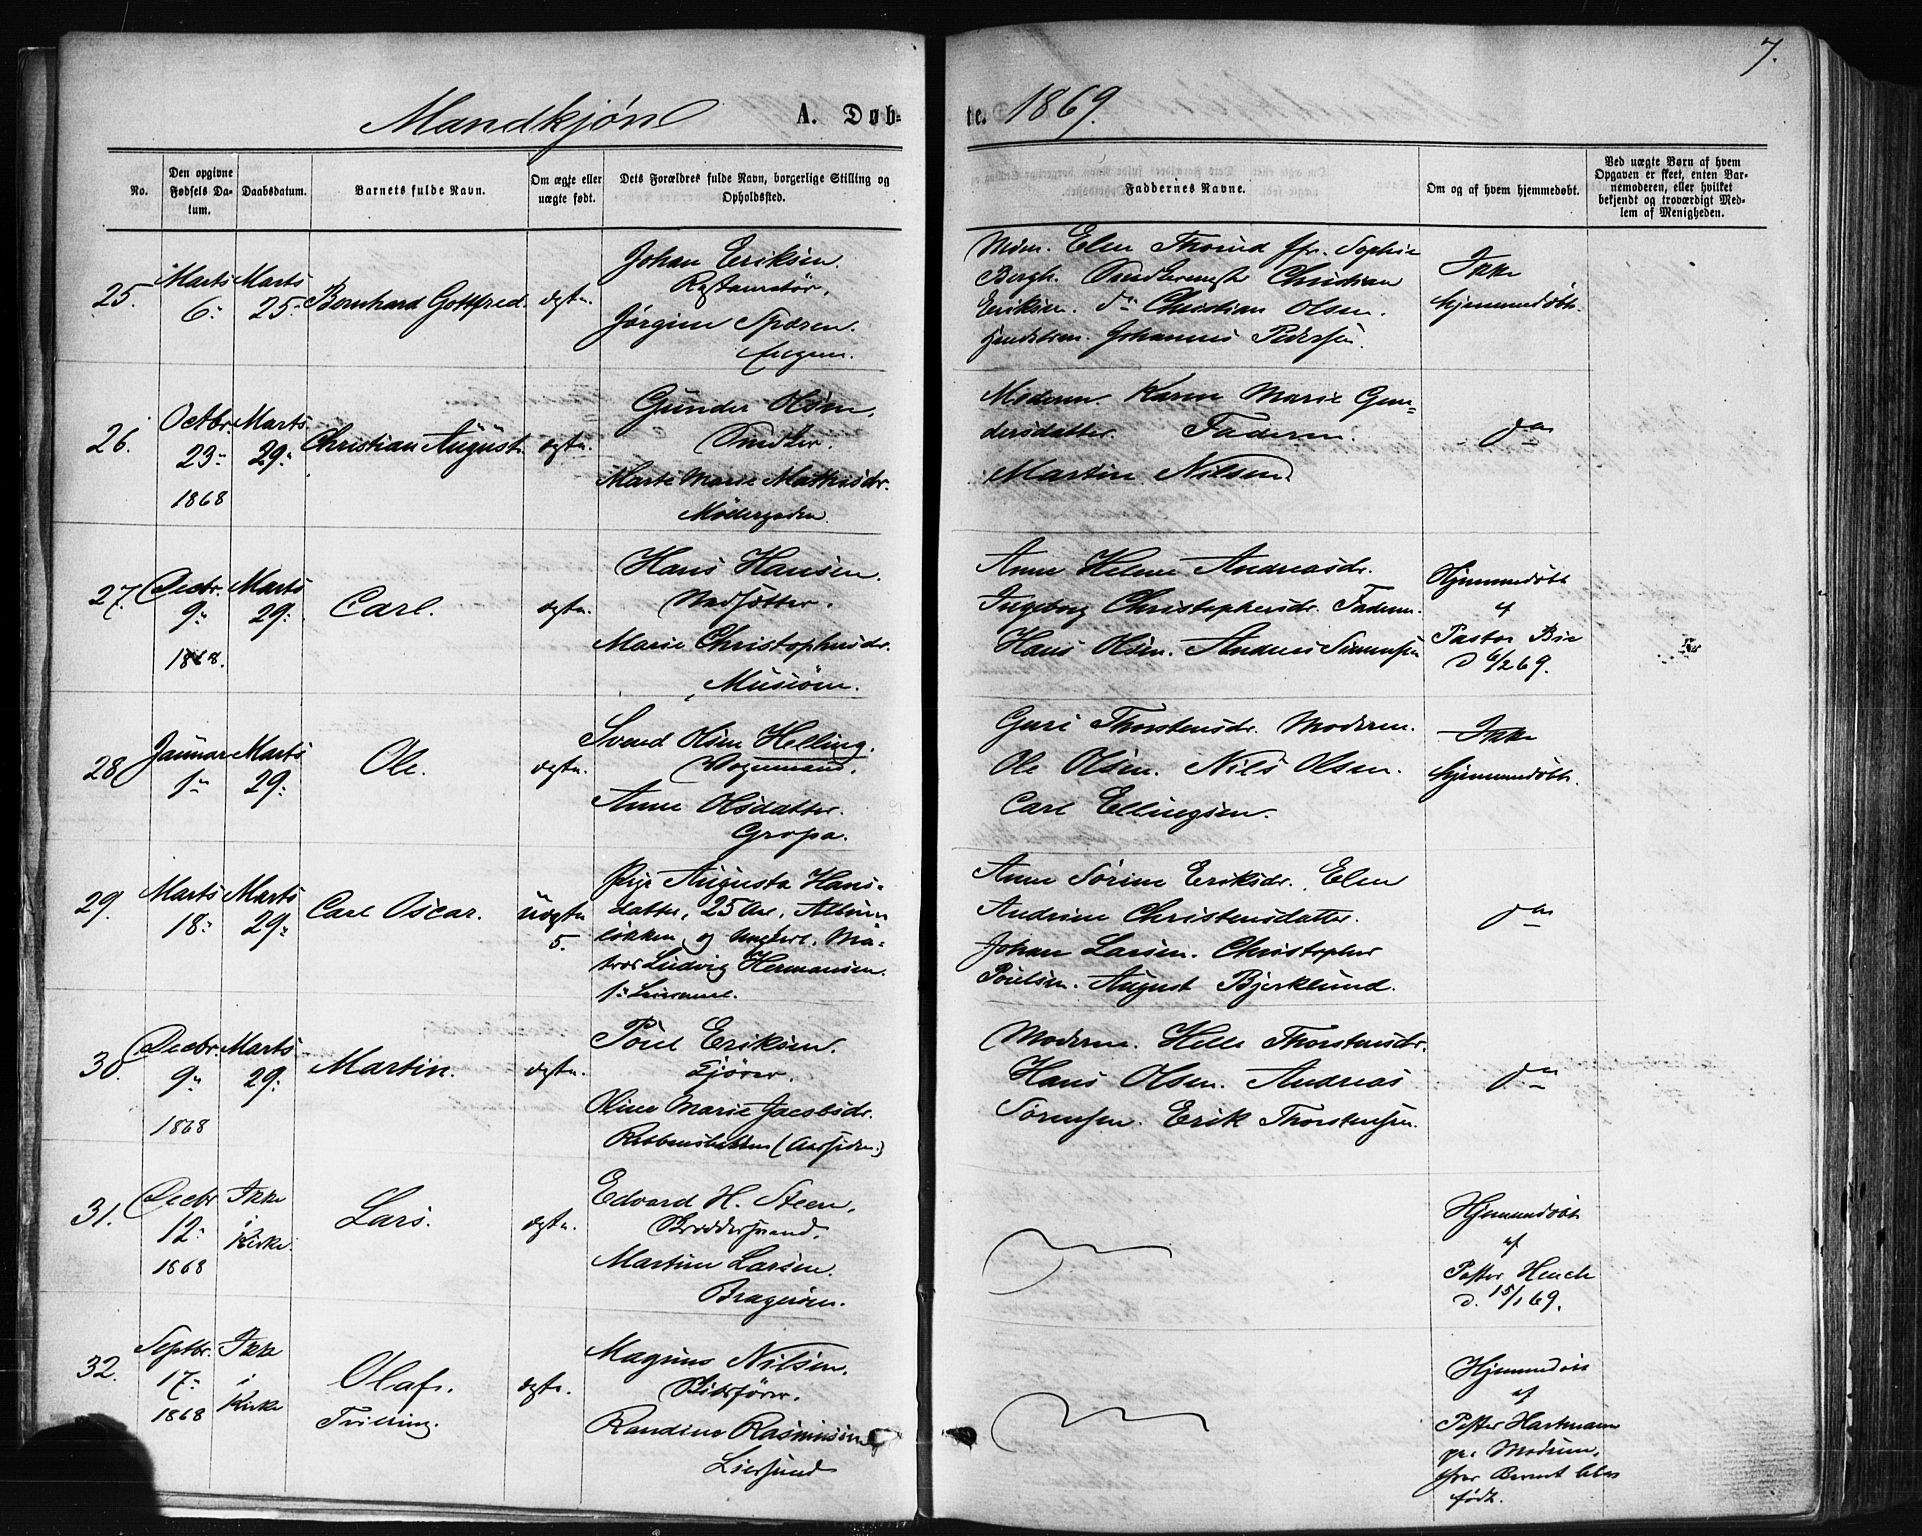 7.
Mandkjøn A. Døb-
te. 1869.
No.
Den opgivne
Fødsels Da-
tum.
Daabsdatum.
Barnets fulde Navn.
Om ægte eller
uægte født.
Dets Forældres fulde Navn, borgerlige Stilling og
Opholdssted.
Faddernes Navne.
Om og af hvem hjemmedøbt.
Ved uægte Børn af hvem
Opgaven er skeet, enten Bar-
nemoderen, eller hvilket
bekjendt og troværdigt Med-
lem af Menigheden.
25.
Marts
6.
Marts
25.
Bernhard Gottfred.
ægte.
Johan Eriksen.
Restauratør.
Jørgine
Engene.
Elen Thorud Sophie
Bergh. Christian
Eriksen. do Christian Olsen.
Johannes Pedersen.
Ikke
hjemmedøbt.
26.
Octbr.
23.
1868
Marts
29.
Christian August.
ægte.
Gunder Olsen.
Snedker.
Marte Marie Mathisdr.
Møllergaden
Moderen. Karen Marie Gun-
dersdatter. Faderen.
Martin Nilsen.
do
27.
Decbr.
9.
1868.
Marts
29.
Carl.
ægte.
Hans Hansen.
Marie Christophersdr.
Musiøen.
Anne Helene Andreasdr.
Ingeborg Christophersdr. Faderen.
Hans Olsen. Andreas Simensen
Hjemmedøbt
af
Pastor Bie
d 6/2 69.
28.
Januar
1.
Marts
29.
Ole.
ægte.
Svend Olsen Helling.
Vognmand.
Anne Olsdatter.
Gropa.
Guri Thorstensdr. Moderen.
Ole Olsen. Nils Olsen.
Carl Ellingsen.
Ikke
hjemmedøbt.
29.
Marts
18.
Marts
29.
Carl Oscar.
uægte
5.
Pige Augusta Hans-
datter, 25 Aar, Albums-
løkken og Ungkarl. Ma-
tros Ludvig Hermansen.
Anne Sørine Eriksdr. Elen
Andrine Christensdatter.
Johan Larsen. Christopher
Poulsen. August Bjerklund.
do
30.
Decbr.
9.
1868
Marts
29.
Martin.
ægte.
Poul Eriksen.
Kjører.
Oline Marie Jacobsdr.
Moderen. Helle Thorstensdr.
Hans Olsen. Andreas
Sørensen. Erik Thorstensen.
do
31.
Decbr
12.
1868
Ikke
i
Kirke.
Lars.
ægte.
Edvard H. Steen.
Martine Larsen.
Bragerøen.
Hjemmedøbt
af
Pastor Heuch
d. 15/1 69.
32.
Septbr.
17.
1868
Ikke
i
Kirke
Olaf.
Tvilling.
ægte.
Magnus Nilsen.
Skibsfører.
Randine Rasmussen
Liersund
Hjemmedøbt
af
Pastor Hartmann
paa Modum,
født.